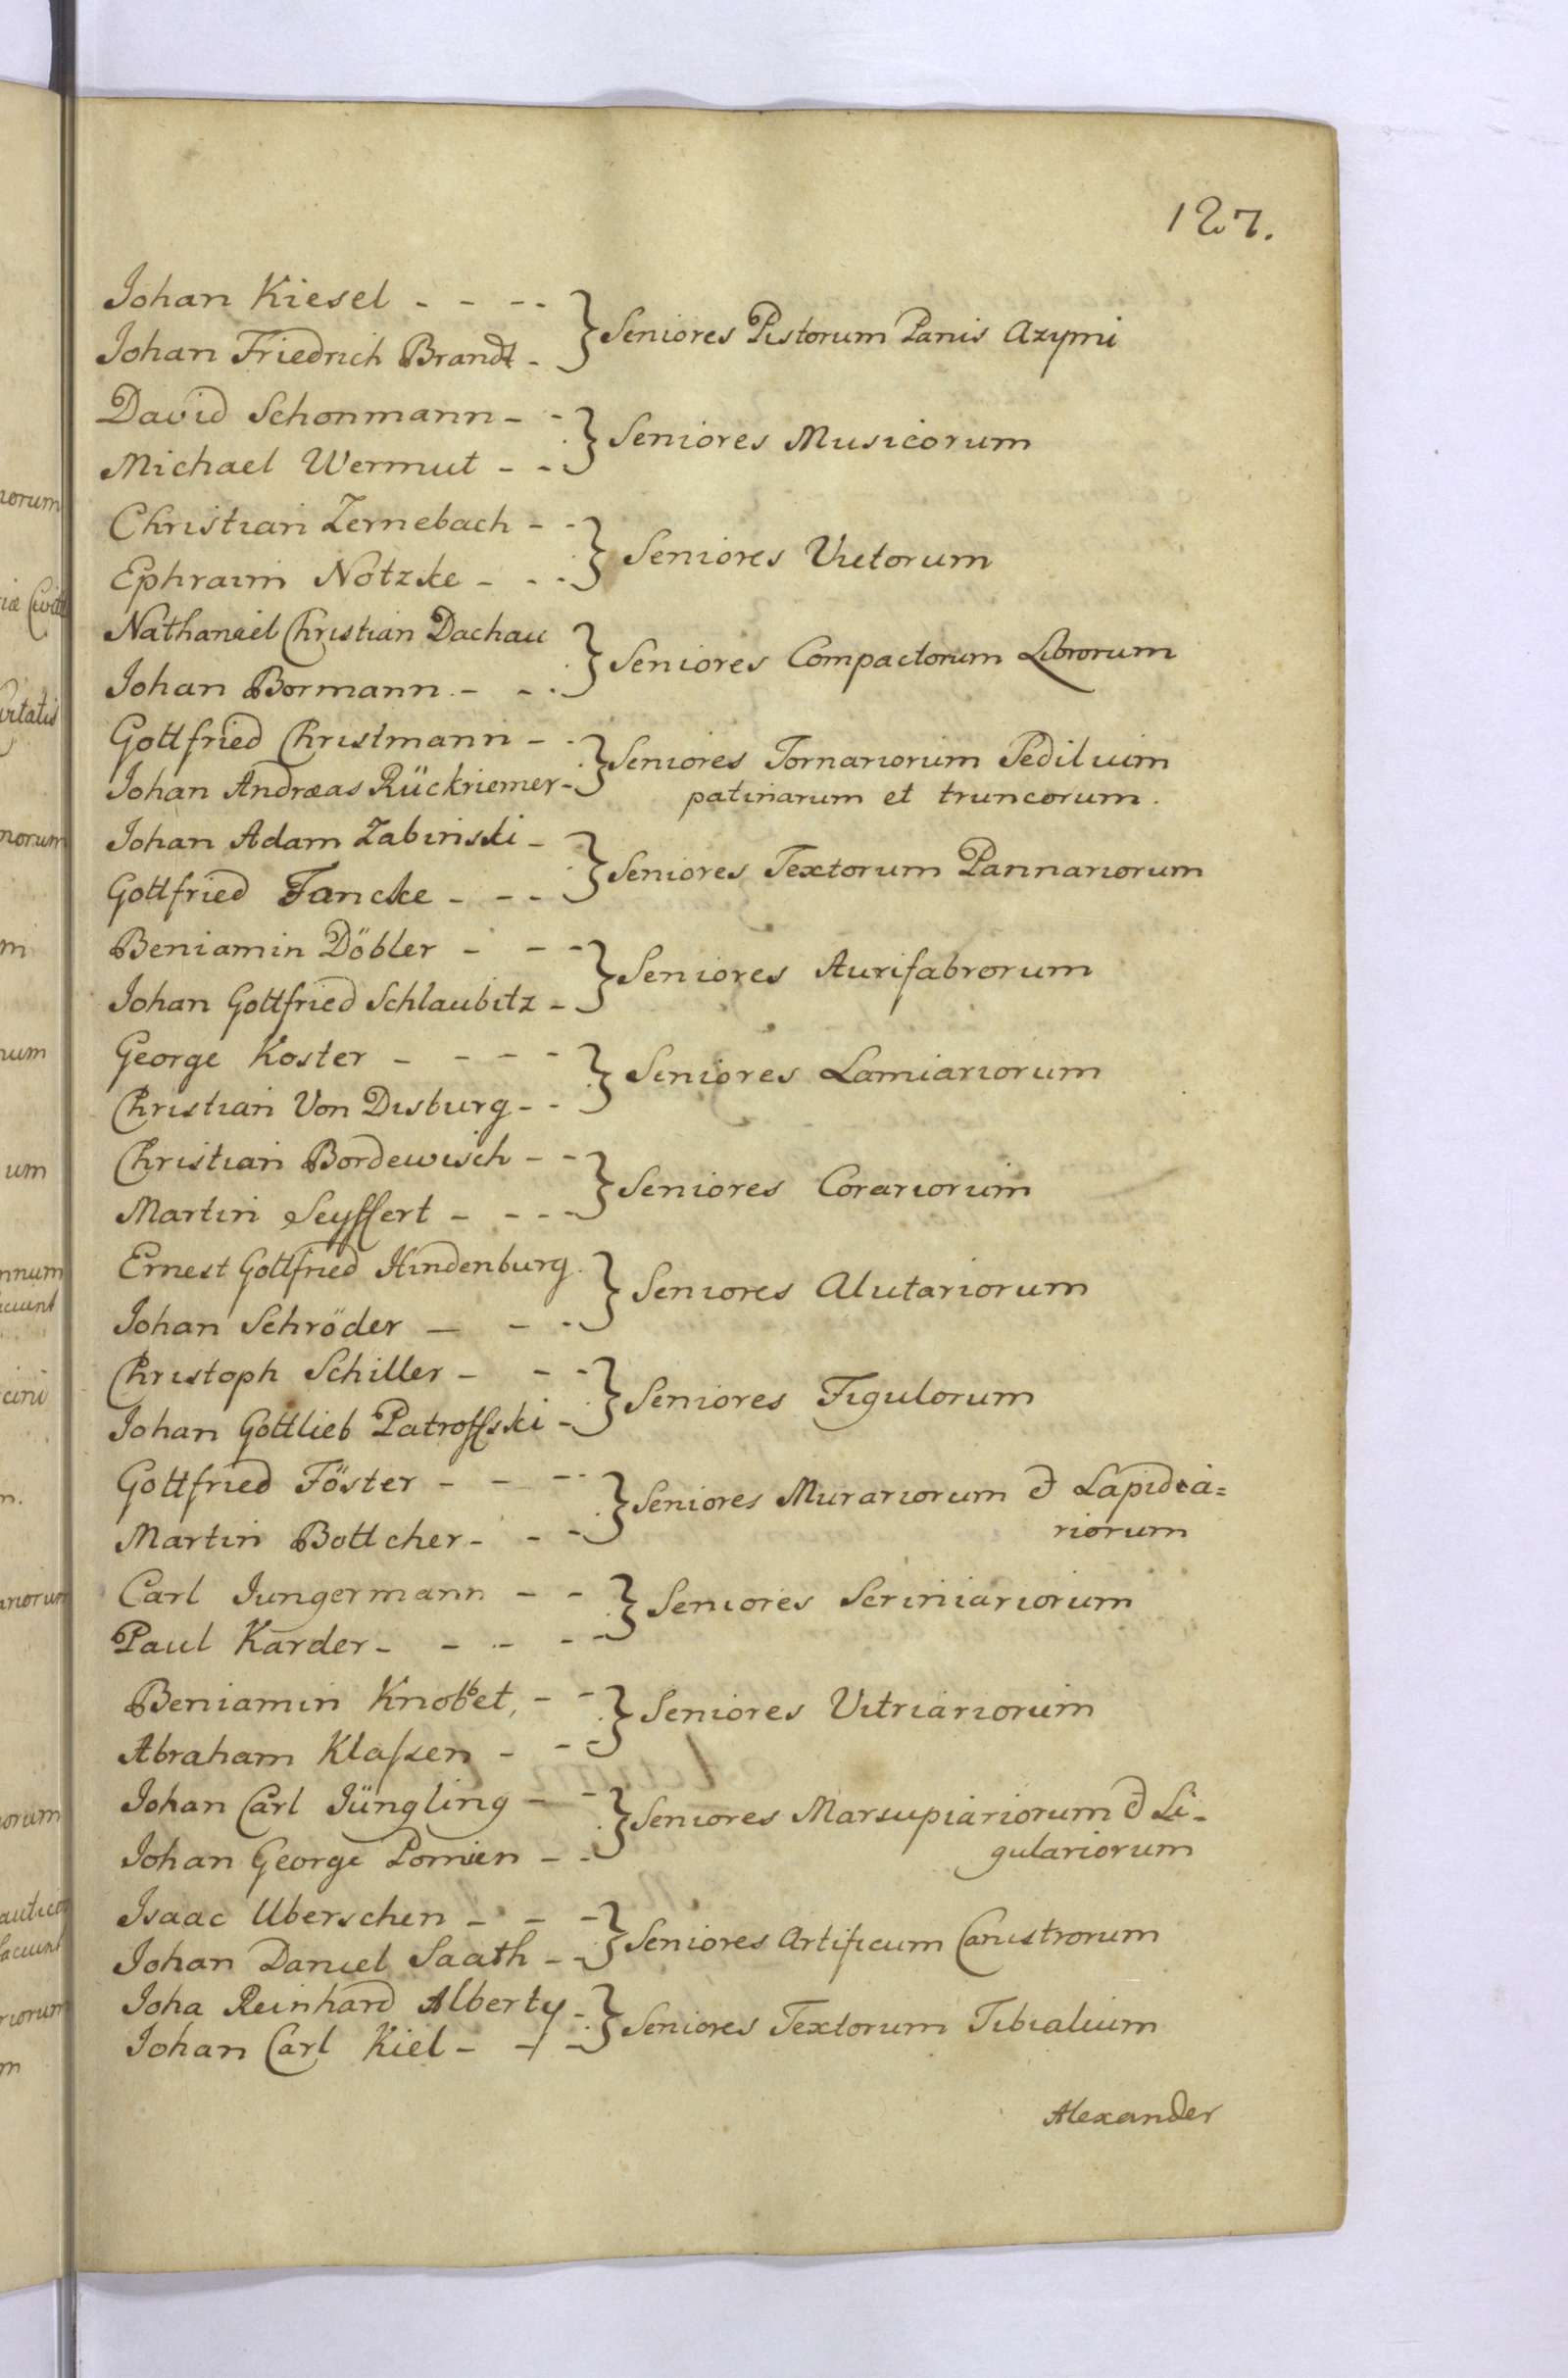 127.
Johan Kiesel - - - -
Johan Friedrich Brandt -
} Seniores Pistorum Panis Azymi
David Schonmann - -
Michael Wermut - -
} Seniores Musicorum
Christian Zernebach - -
Ephraim Notzke - - -
} Seniores Vietorum
Nathanael Christian Dachau
Johan Bormann - - -
} Seniores Compactorum Librorum
Gottfried Christmann - -
Johan Andræas Rückriemer -
} Seniores Tornariorum Pedilium
patinarum et truncorum.
Johan Adam Zabinski -
Gottfried Fancke - - -
} Seniores Textorum Pannariorum
Beniamin Döbler - - -
Johan Gottfried Schlaubitz -
} Seniores Aurifabrorum
George Koster - - - -
Christian Von Disburg - -
} Seniores Lamiariorum
Christian Bordewisch - -
Martin Seyffert - - - -
} Seniores Corariorum
Ernest Gottfried Hindenburg
Johan Schröder - - -
} Seniores Alutariorum
Christoph Schiller - - -
Johan Gottlieb Patroffski -
} Seniores Figulorum
Gottfried Föster - - - -
Martin Bottcher - - -
} Seniores Murariorum & Lapidea=
riorum
Carl Jungermann - -
Paul Karder - - - - -
} Seniores Scriniariorum
Beniamin Knobbet, - -
Abraham Klassen - - -
} Seniores Vitriariorum
Johan Carl Jüngling - -
Johan George Pomien - -
} Seniores Marsupiariorum & Li-
gulariorum
Isaac Uberschen - - -
Johan Daniel Saath - -
} Seniores Artificum Canistrorum
Joha Reinhard Alberty -
Johan Carl Kiel - - -
} Seniores Textorum Tibialium
Alexander